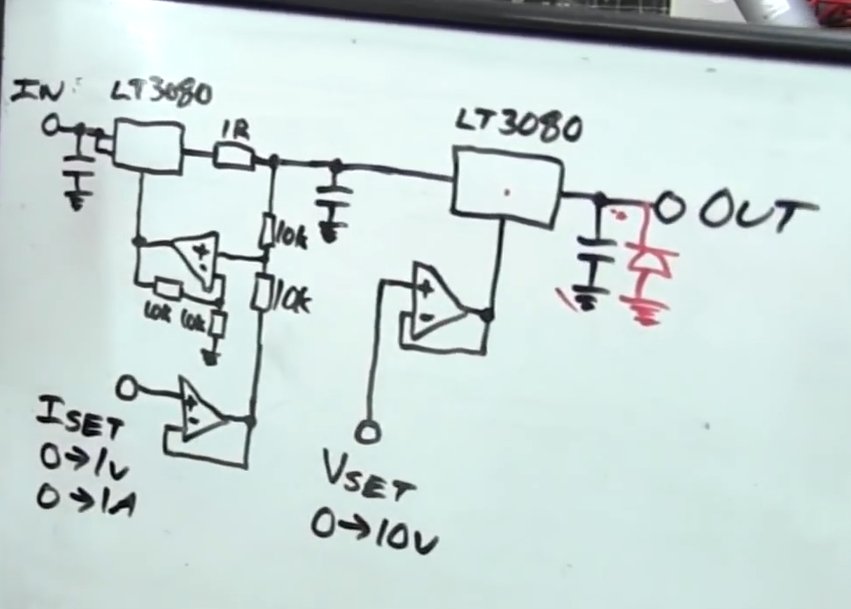 IN: LT3080
1R
LT3080
OUT
10k
10k
10k 10k
+
-
+
-
+
-
ISET
0→1V
0→1A
VSET
0→10V